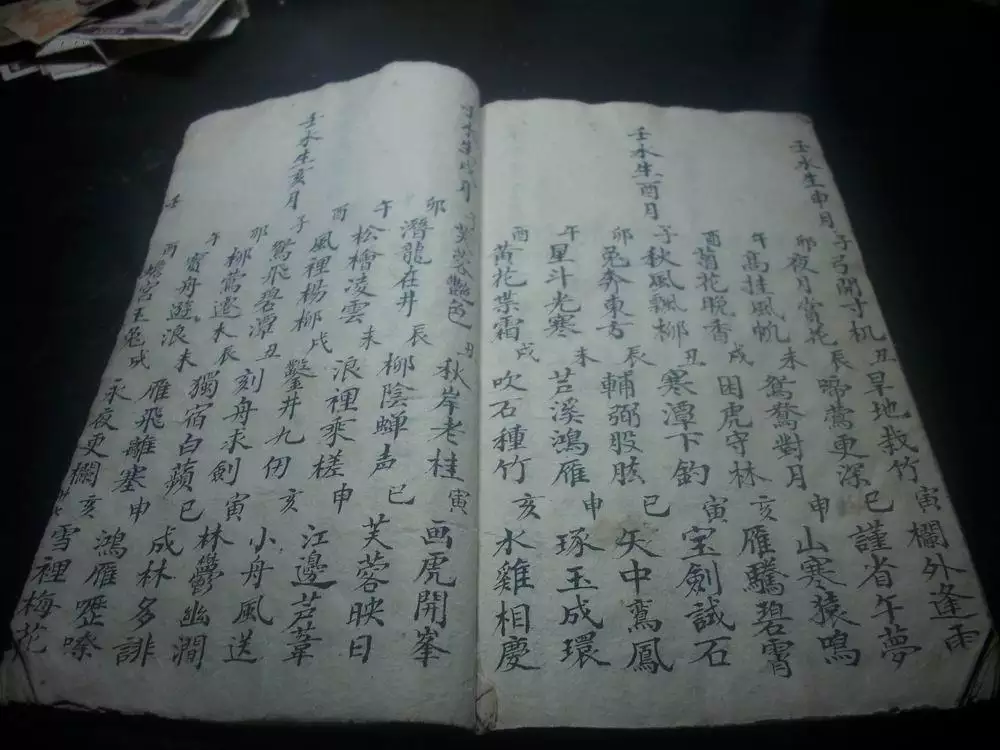 壬水生申月
子弓開寸机 丑旱地栽竹 寅欄外逢雨
卯夜月賞花 辰啼鶯更深 巳謹省午夢
午高挂風帆 未鴛鴦對月 申山寒猿鳴
酉菊花晚香 戌困虎守林 亥雁騰碧霄
壬水生酉月
子秋風飄柳 丑寒潭下釣 寅宝劍試石
卯兔奔東方 辰輔弼股肱 巳矢中鸞鳳
午星斗光寒 未芦溪鴻雁 申琢玉成環
酉黄花葉霜 戌吹石種竹 亥水雞相慶
壬水生戌月
芙蓉艷色 丑秋岸老桂 寅画虎開峯
卯潛龍在井 辰柳陰蝉声 巳芙蓉映日
午松檜凌雲 未浪裡乘槎 申江邊芦葦
酉風裡楊柳 戌鑿井九仞 亥小舟風送
壬水生亥月
子鴛飛碧潭 丑刻舟求劍 寅林鬱幽澗
卯柳鶯遷木 辰獨宿白蘋 巳成林多誹
午賓舟遊浪 未雁飛離塞 申鴻雁嚦嗦
酉蟾宮玉兔 戌永夜更欄 亥雪裡梅花
壬